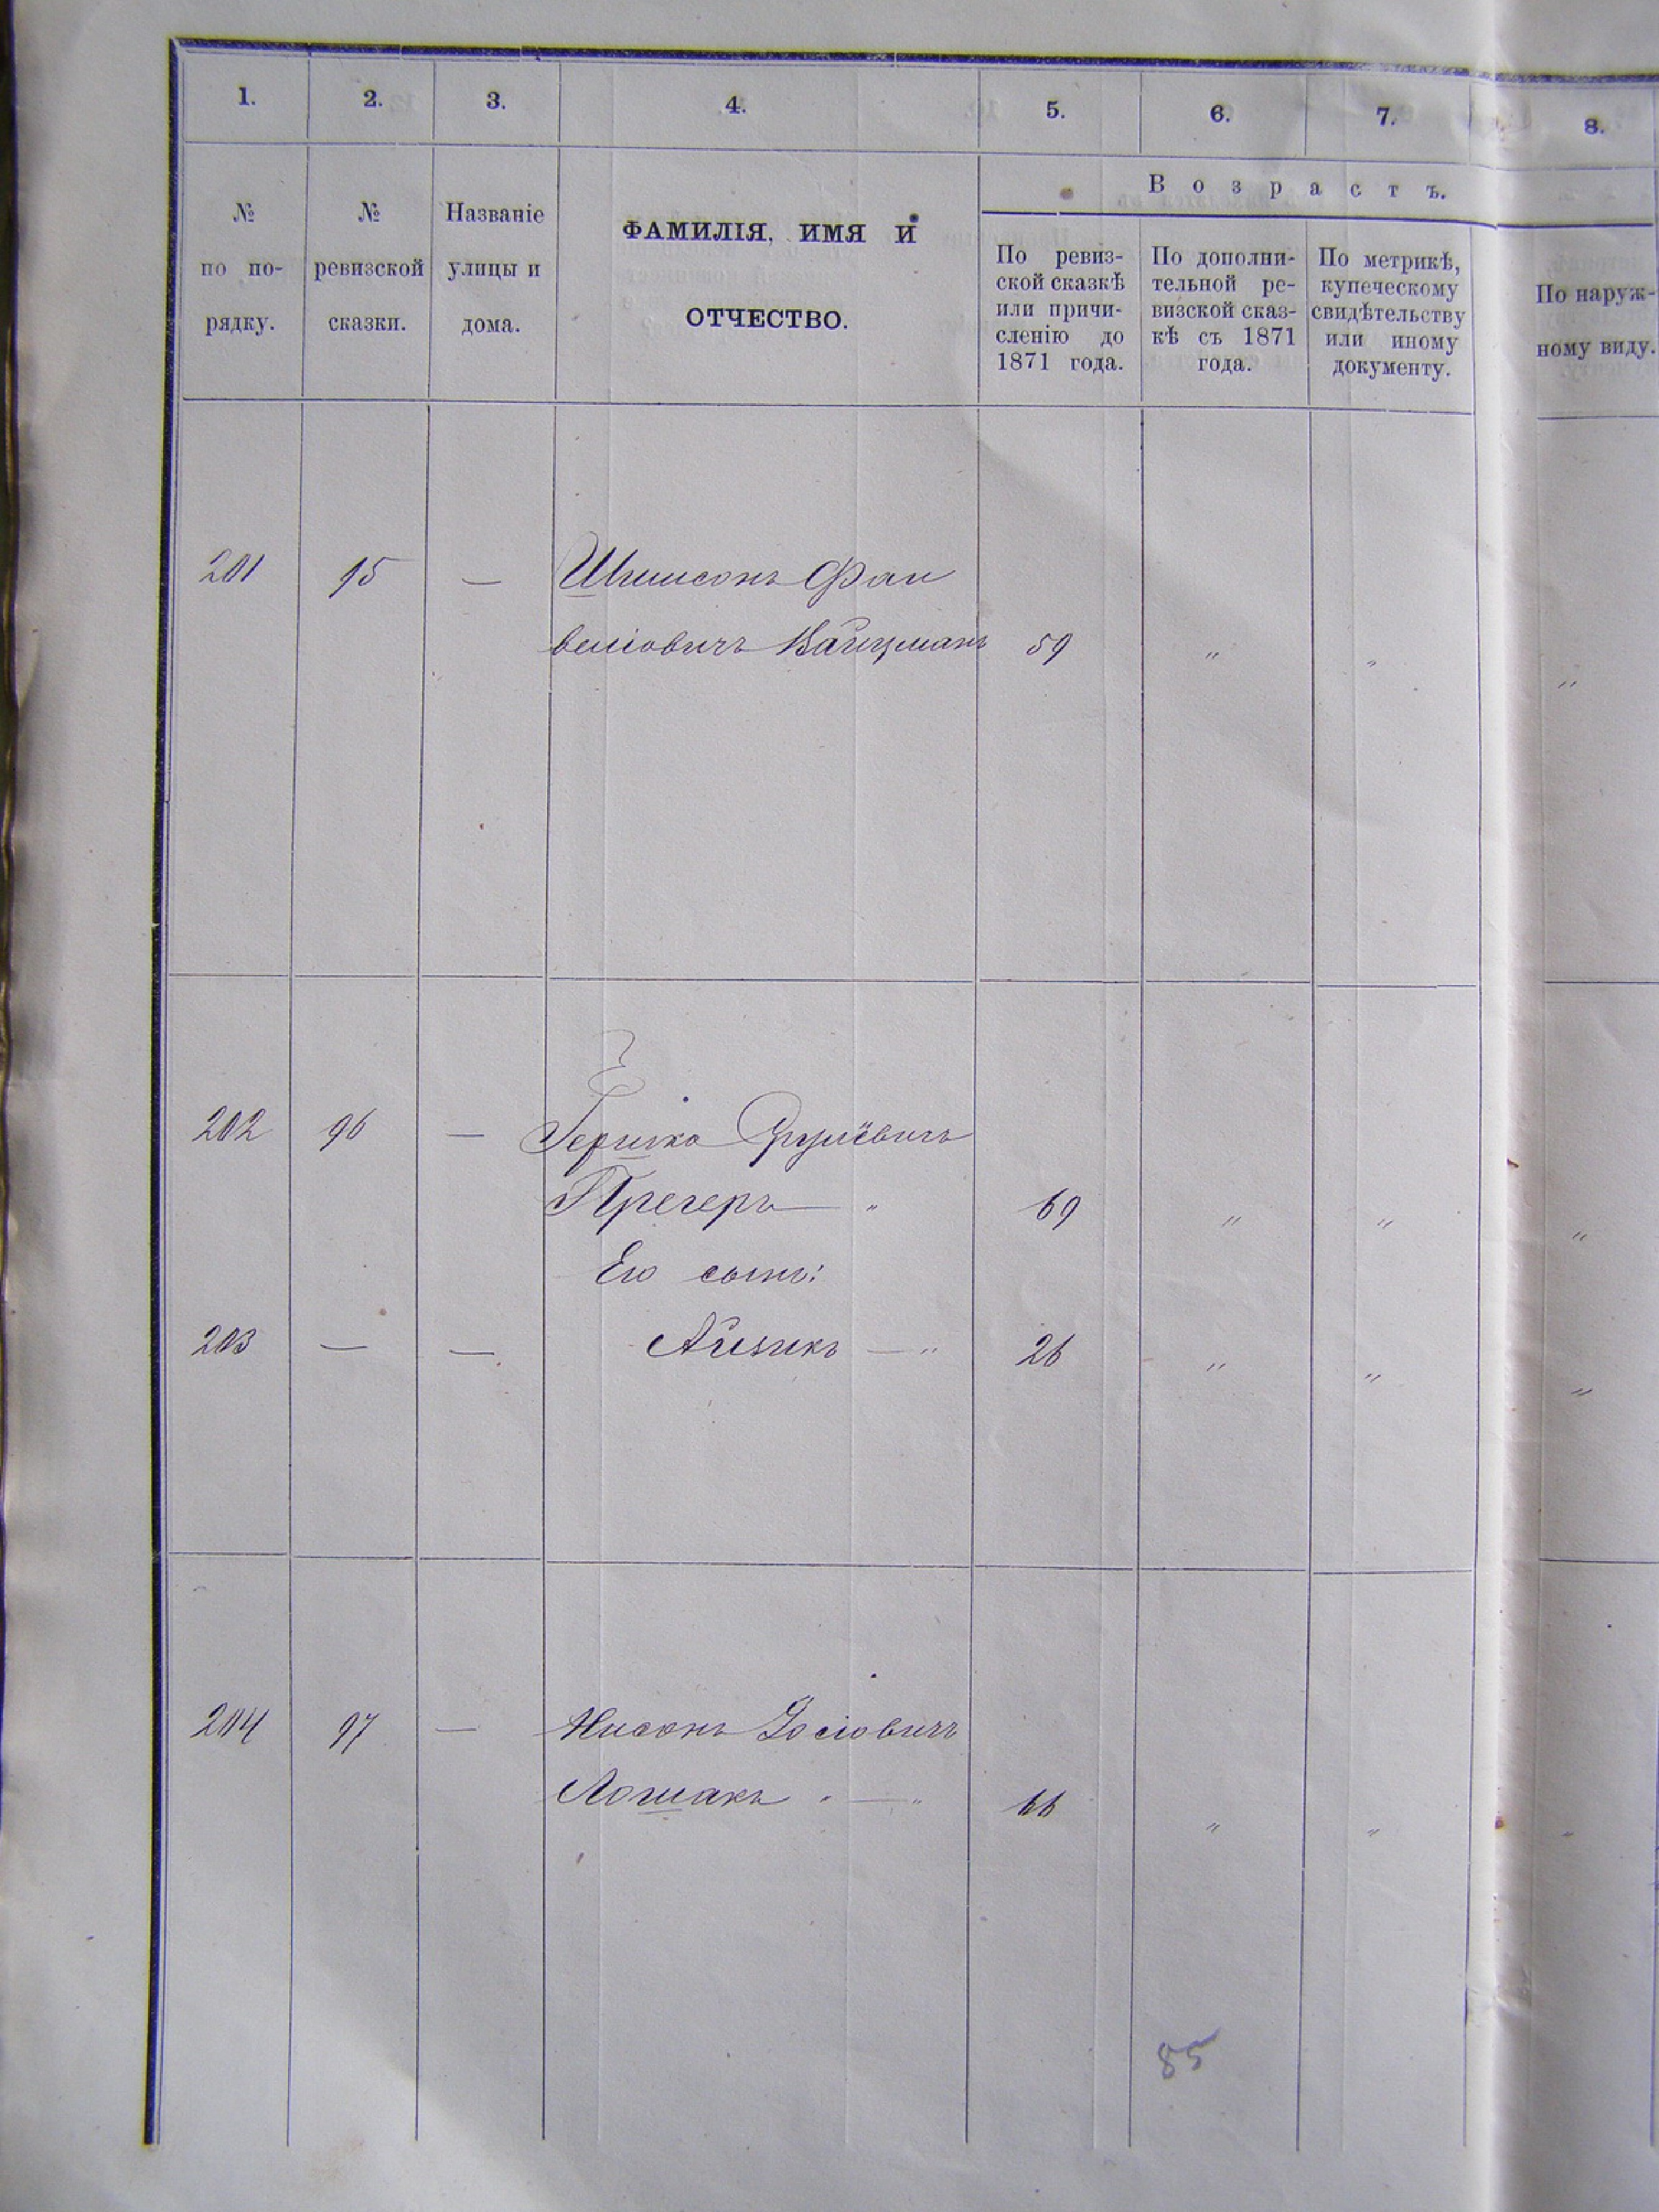 1. 2. 3. 4. 5. 6. 7. 8.
Возрастъ.
№ по по-рядку.
№ ревизской сказки.
Названіе улицы и дома.
ФАМИЛІЯ, ИМЯ И
ОТЧЕСТВО.
По ревиз-
ской сказкѣ
или причи-
сленію до
1871 года.
По дополни-
тельной ре-
визской сказ-
кѣ съ 1871
года.
По метрикѣ,
купеческому
свидѣтельству
или иному
документу.
По наруж-
ному виду.
201 95 — Шимсонъ Фай
велiовичъ Вайцманъ 59 " " "
202 96 — Гершко
Прегеръ — " 69 " " "
Его сынъ:
203 — — Айзикъ — " 26 " " "
204 97 — Нисонъ Іосіовичъ
Лошакъ " — " 66 " " "
85